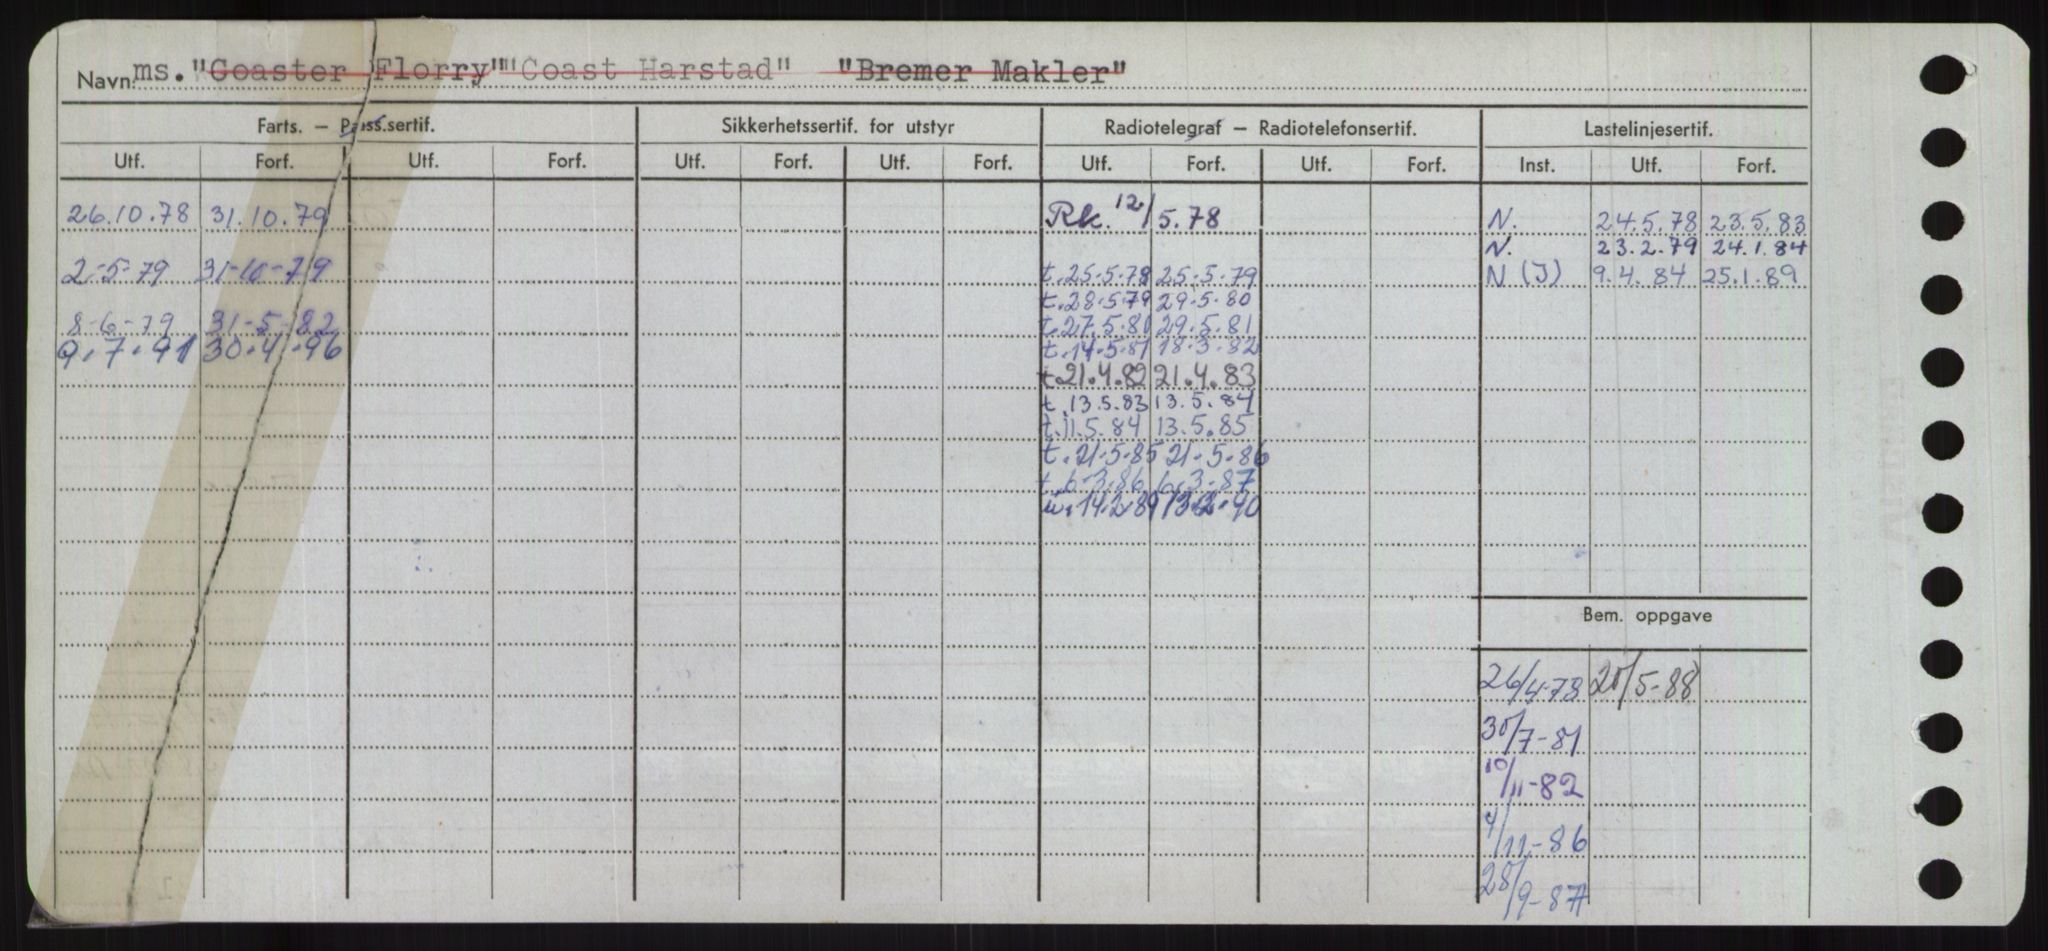 Navn ms. "Coaster Florry" "Coast Harstad" "Bremer Makler"
Farts. — Pass.sertif. Sikkerhetssertif. for utstyr Radiotelegraf — Radiotelefonsertif. Lastelinjesertif.
Utf. Forf. Utf. Forf. Utf. Forf. Utf. Forf. Utf. Forf. Utf. Forf. Inst. Utf. Forf.
26.10.78 31.10.79 Rk. 12/5.78 N. 24.5.78 23.5.83
N. 23.2.79 24.1.84
2-5-79 31-10-79 t.25-5-78 25-5-79 N (J) 9.4.84 25.1.89
t.28.5.79 29.5.80
8-6-79 31-5-82 t.27.5.81 29.5.81
9.7.91 30.4.96 t.14.5.81 18.3.82
t.21.4.82 21.4.83
t.13.5.83 13.5.84
t.11.5.84 13.5.85
t.21-5-85 21-5-86
t.6-3.86 6.3-87
14.2.89 13.2.90
Bem. oppgave
26/4-78 20/5-88
30/7-81
10/11-82
4/11-86
28/9-87